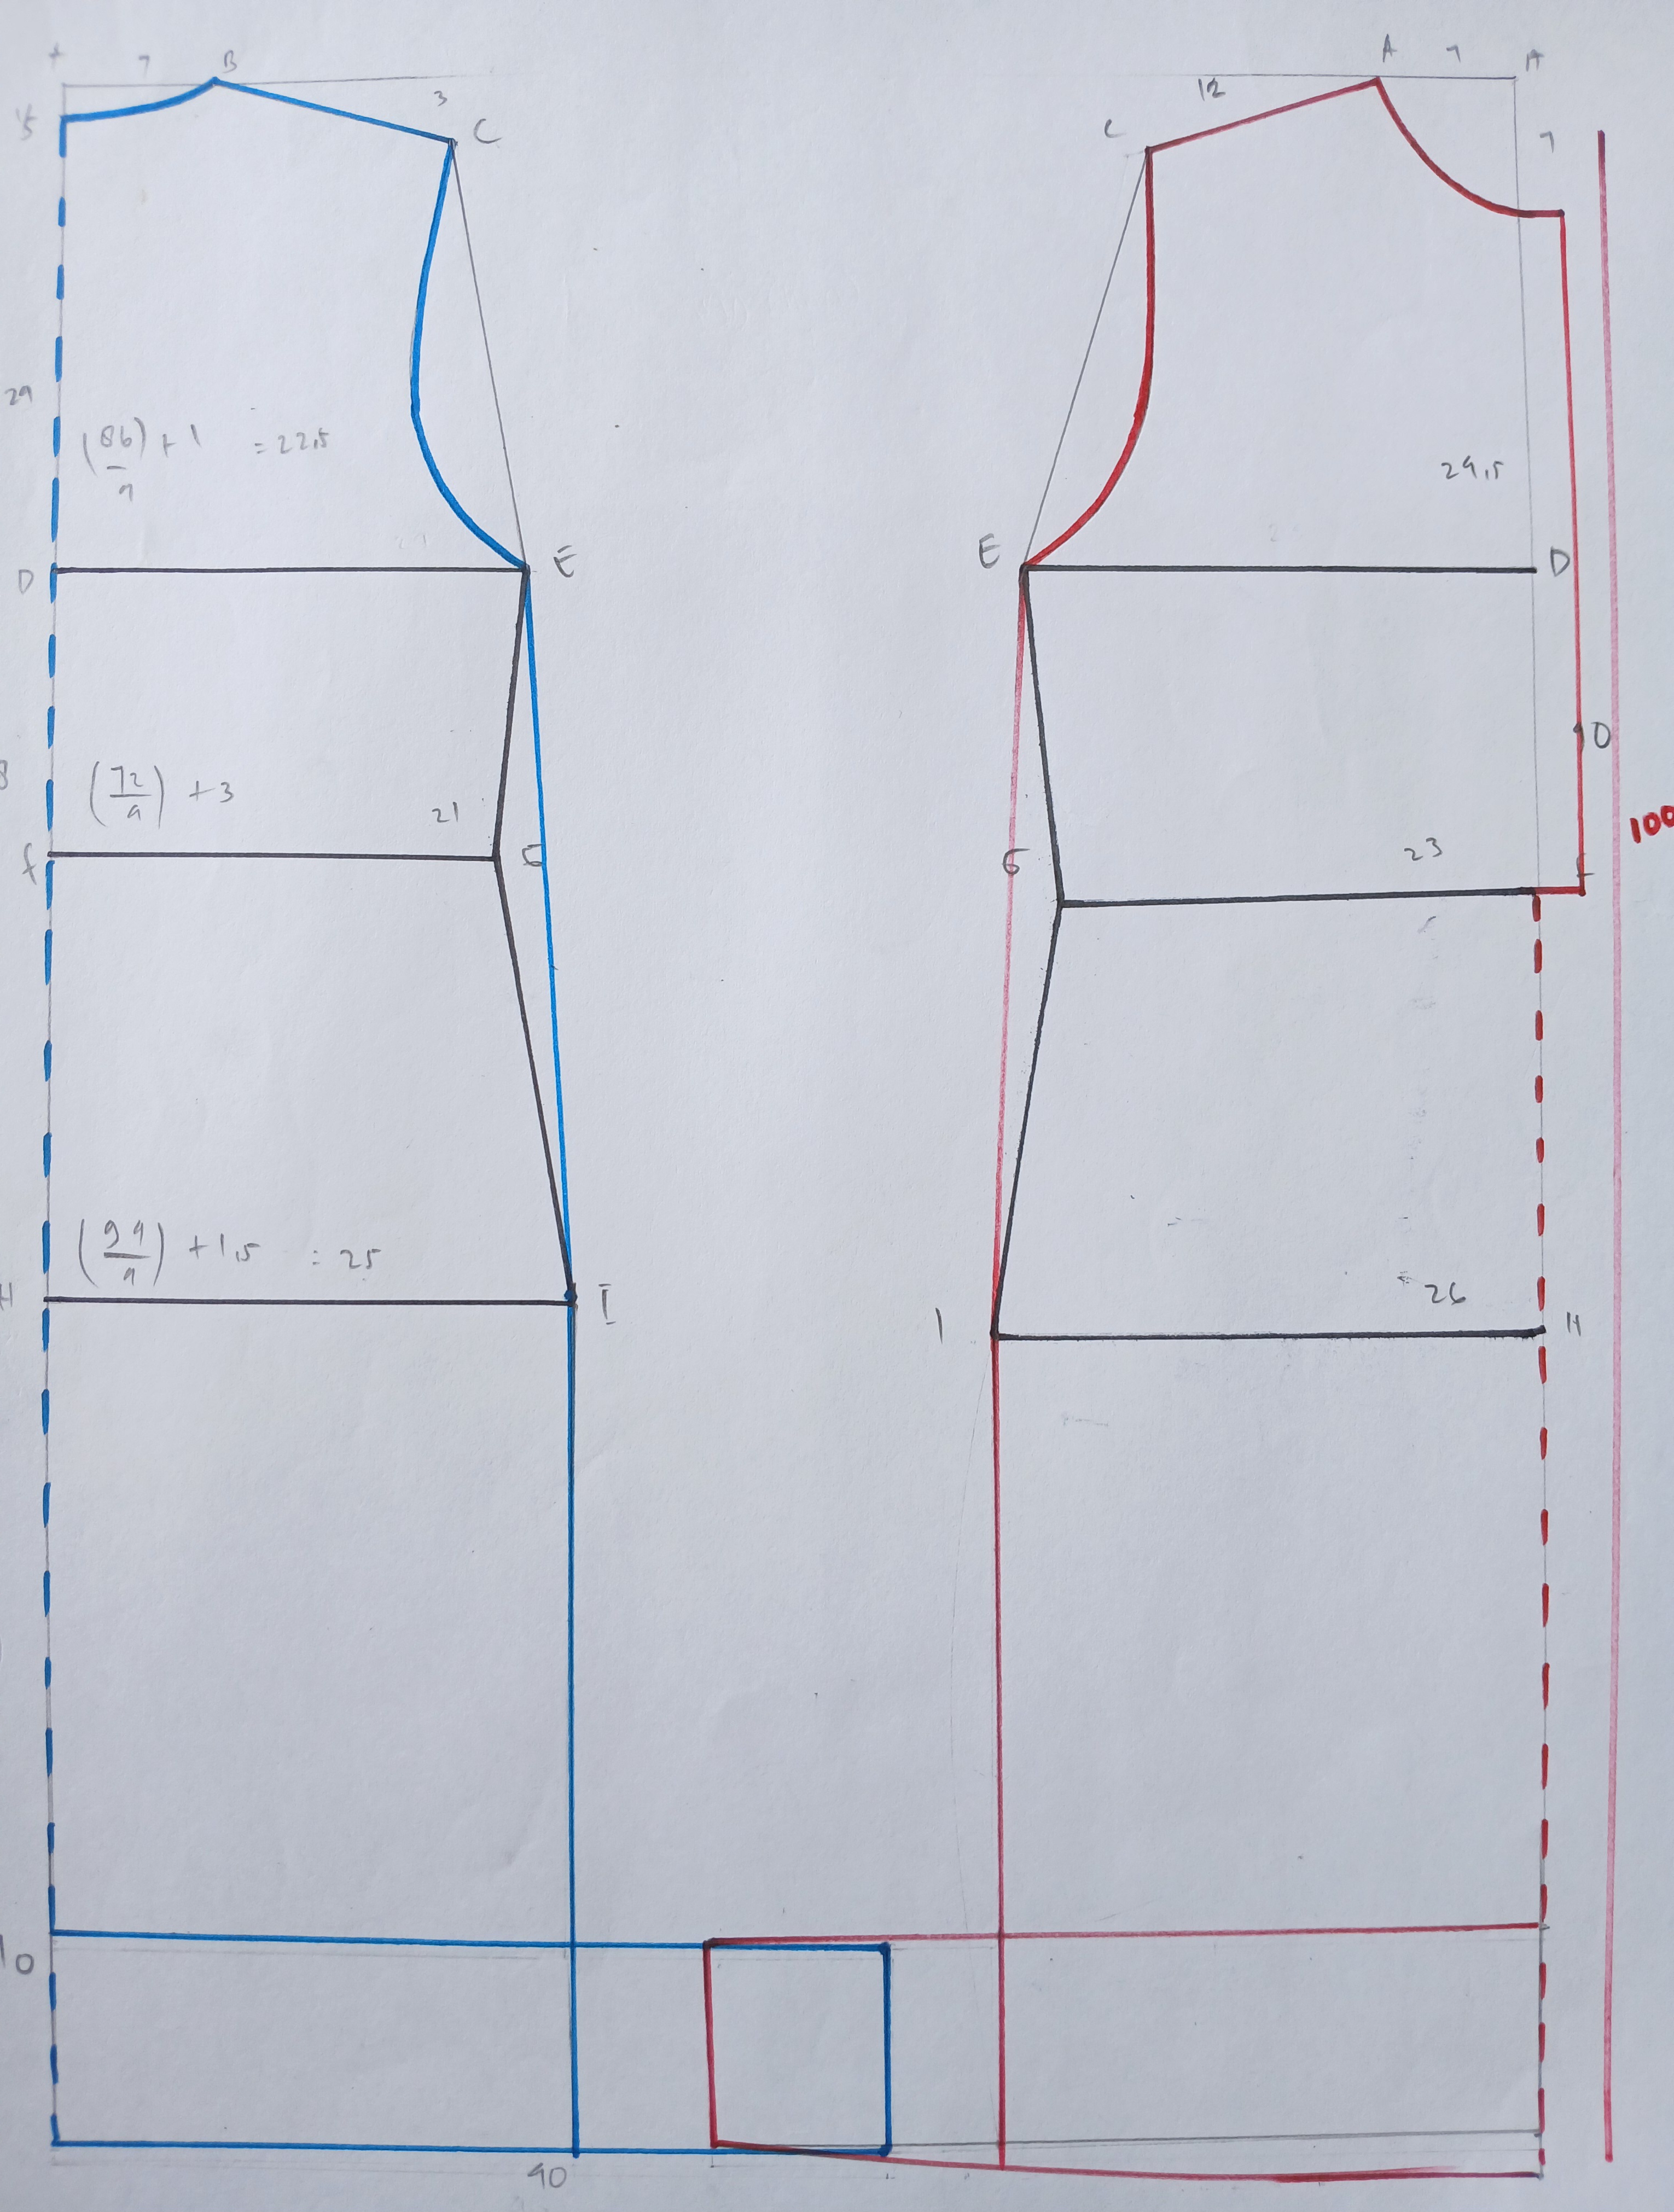 A 7 B
1,5
3
C
29
(86/4) + 1 = 22,5
D E
(72/4) + 3 21
f G
(94/4) + 1,5 = 25
H I
10
40
12 A 7 A
C 7
24,5
E D
40
100
G 23 F
26
I H